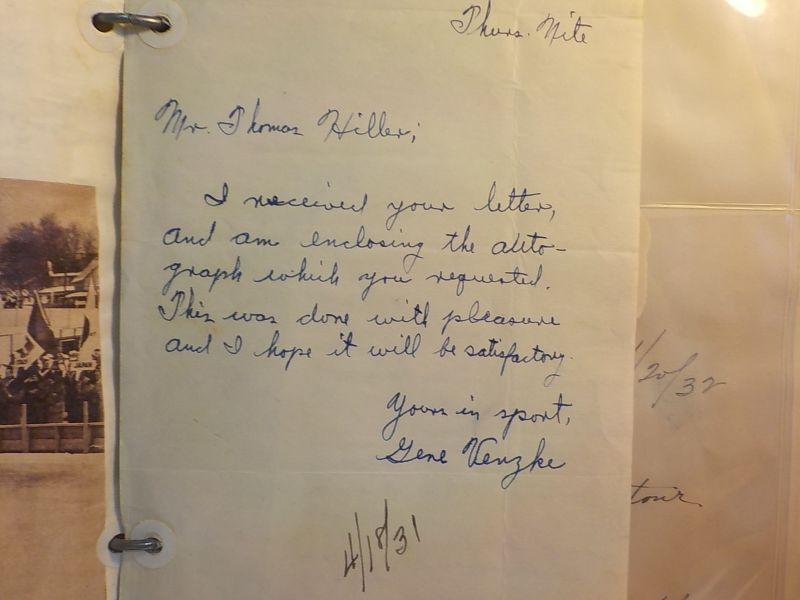 Thurs. Nite
Mr. Thomas Hiller;
I received your letter,
and am enclosing the auto-
graph which you requested.
This was done with pleasure
and I hope it will be satisfactory.
Yours in sport,
Gene Venzke
4/18/31
/20/32
tour.